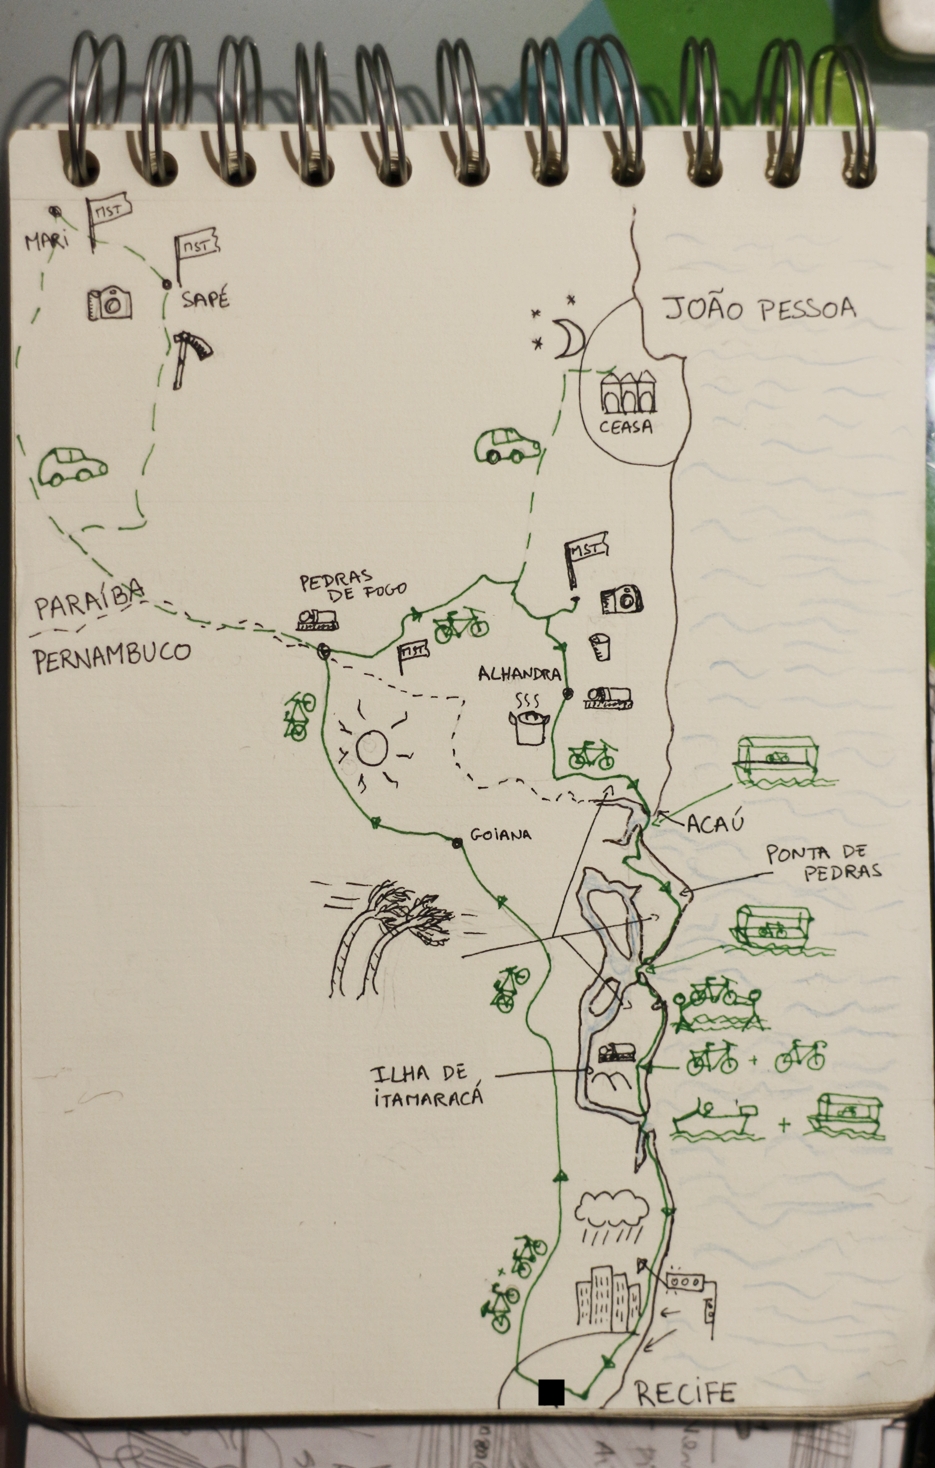 MST
MARI
MST
SAPÉ
JOÃO PESSOA
CEASA
MST
PEDRAS
DE FOGO
PARAÍBA
PERNAMBUCO
MST
ALHANDRA
ACAÚ
GOIANA
PONTA DE
PEDRAS
ILHA DE
ITAMARACÁ
+
+
+
RECIFE